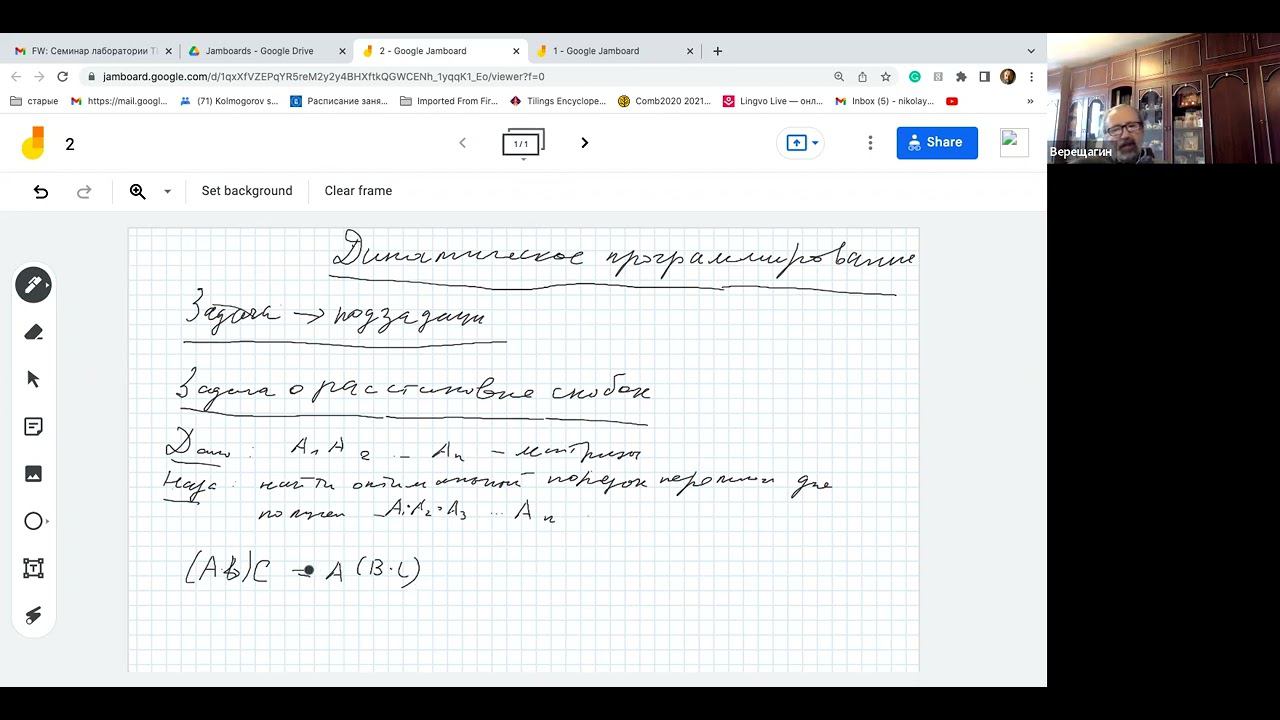 FW: Семинар лаборатории Т
Jamboards - Google Drive
2 - Google Jamboard
1 - Google Jamboard
jamboard.google.com/d/1qxXfVZEPqYR5reM2y2y4BHXftkQGWCENh_1yqqK1_Eo/viewer?f=0
старые
https://mail.googl...
(71) Kolmogorov s...
Расписание заня...
Imported From Fir...
Tilings Encyclope...
Comb2020 2021...
Lingvo Live — онл...
Inbox (5) - nikolay...
»
2
1/1
Share
Set background
Clear frame
Верещагин
Динамическое программирование
Задача → подзадачи
Задача о расстановке скобок
Дано: A1 A2 .. An - матрицы
найти оптимальный порядок для
A1·A2·A3 ... An
(A·B)C = A(B·C)